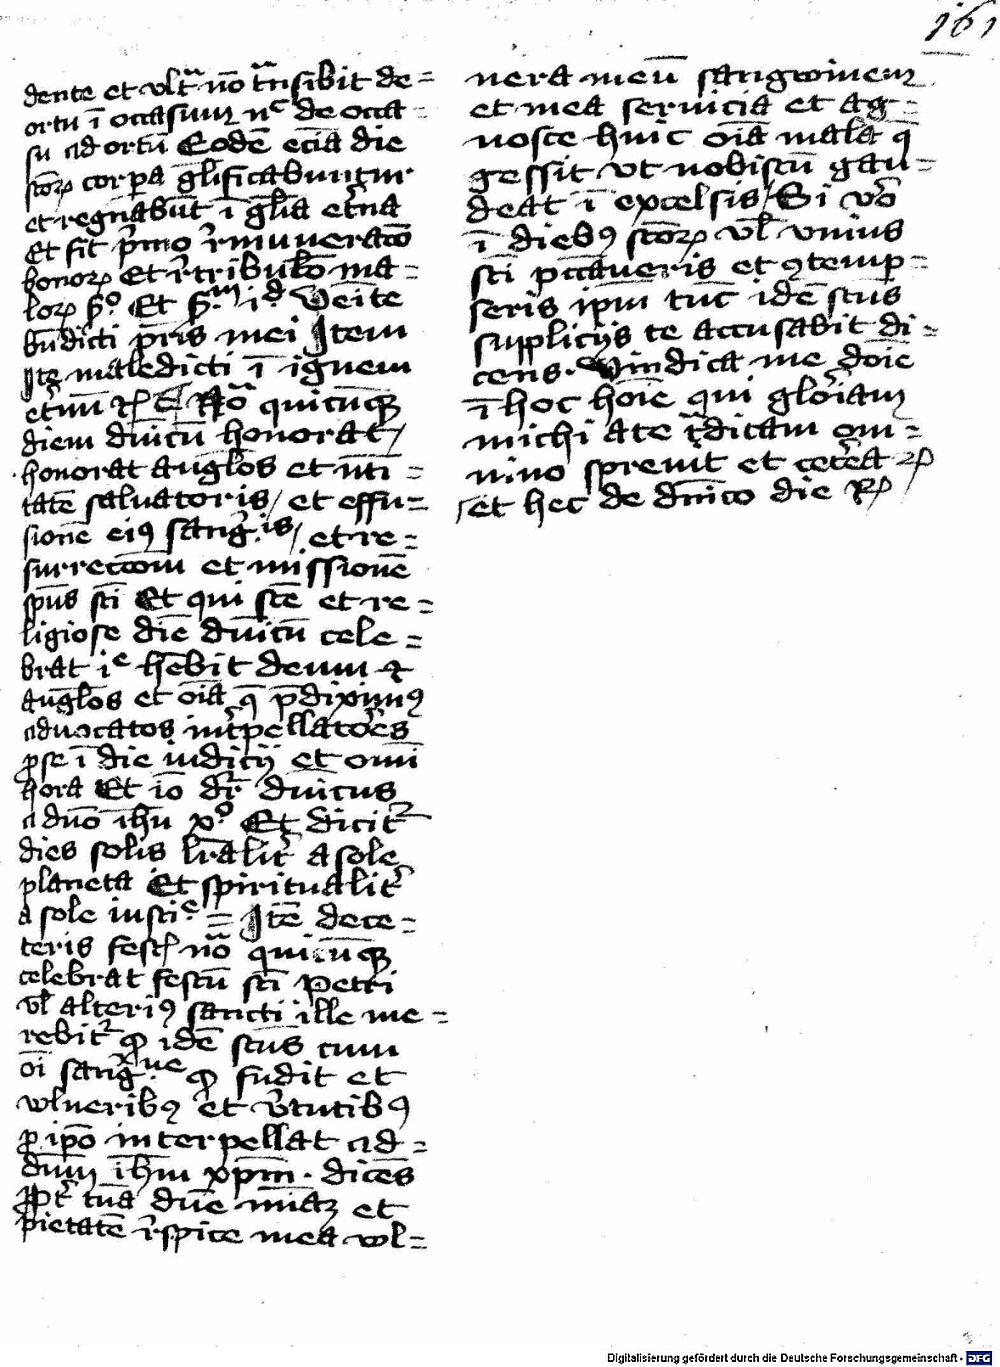 161
dente et vlt̃a nō t̃nsibit de=
ortu ī occasum nᶜ de occa=
su ad ortū Eodē ecia die
sctoꝝ corpa gl̄ificabuntur
et regnabūt ī gl̄ia et̃na
Et fit p̃mo r̃muneratō
bonoꝝ Et r̃tribulō ma=
loꝝ Et Venite
bn̄dicti pr̄is mei Item
Ite maledicti ī ignem
et̃nū quicūqꝫ
diem dn̄icū honorat/
honorat angl̄os et
tatē saluatoris/ et effu=
sionē eiꝯ sang̃is/ et re=
surrectōm et missionē
spūs sct̄i Et qui sct̄e et re=
ligiose diē dn̄icū cele=
brat iᶜ hēbit deum ⁊
angl̄os et oīa q̄ p̄diximꝯ
aduocatos int̃pellatōes
ꝓ se ī die iudicij et omī
hora Et iō dr̄ dn̄icus
a dn̄o ih̄u xᵒ Et dicit᷑
dies solis lr̄alit̃ a sole
planeta Et spiritualit̃
a sole iusticᵉ = Itē de ce=
teris fest nō quicūqꝫ
celebrat festū sct̄i Petri
vl̄ alteriꝯ sancti ille me=
rebit᷑ ꝙ idē sct̄us cum
oī sang̃ne ꝙ fudit et
vlneribꝯ et v̄tutibꝯ
ꝓ ip̄o interpellat ad=
dn̄m ih̄m xp̄m · dicēs
Ppt̃ tuā dn̄e mīaꝫ et
pietatē r̃spice mea vol=
nera meū sangwinem
et mea seruicia et ag=
nosce huic oīa mala q̄
gessit vt nobiscū gau=
deat ī excelsis/ Si vō
ī diebꝯ sctōꝝ vl̄ vnius
sct̄i pccaueris et ꝯtemp=
seris ip̄m tūc idē sct̄us
supplicijs te accusabit di=
cens · Vindica me dōīe
ī hoc hoīe qui glōiam
michi a te t̃ditam om=
nino spreuit et cetera ꝛc̄
et hec de dn̄ico die
Digitalisierung gefördert durch die Deutsche Forschungsgemeinschaft - DFG